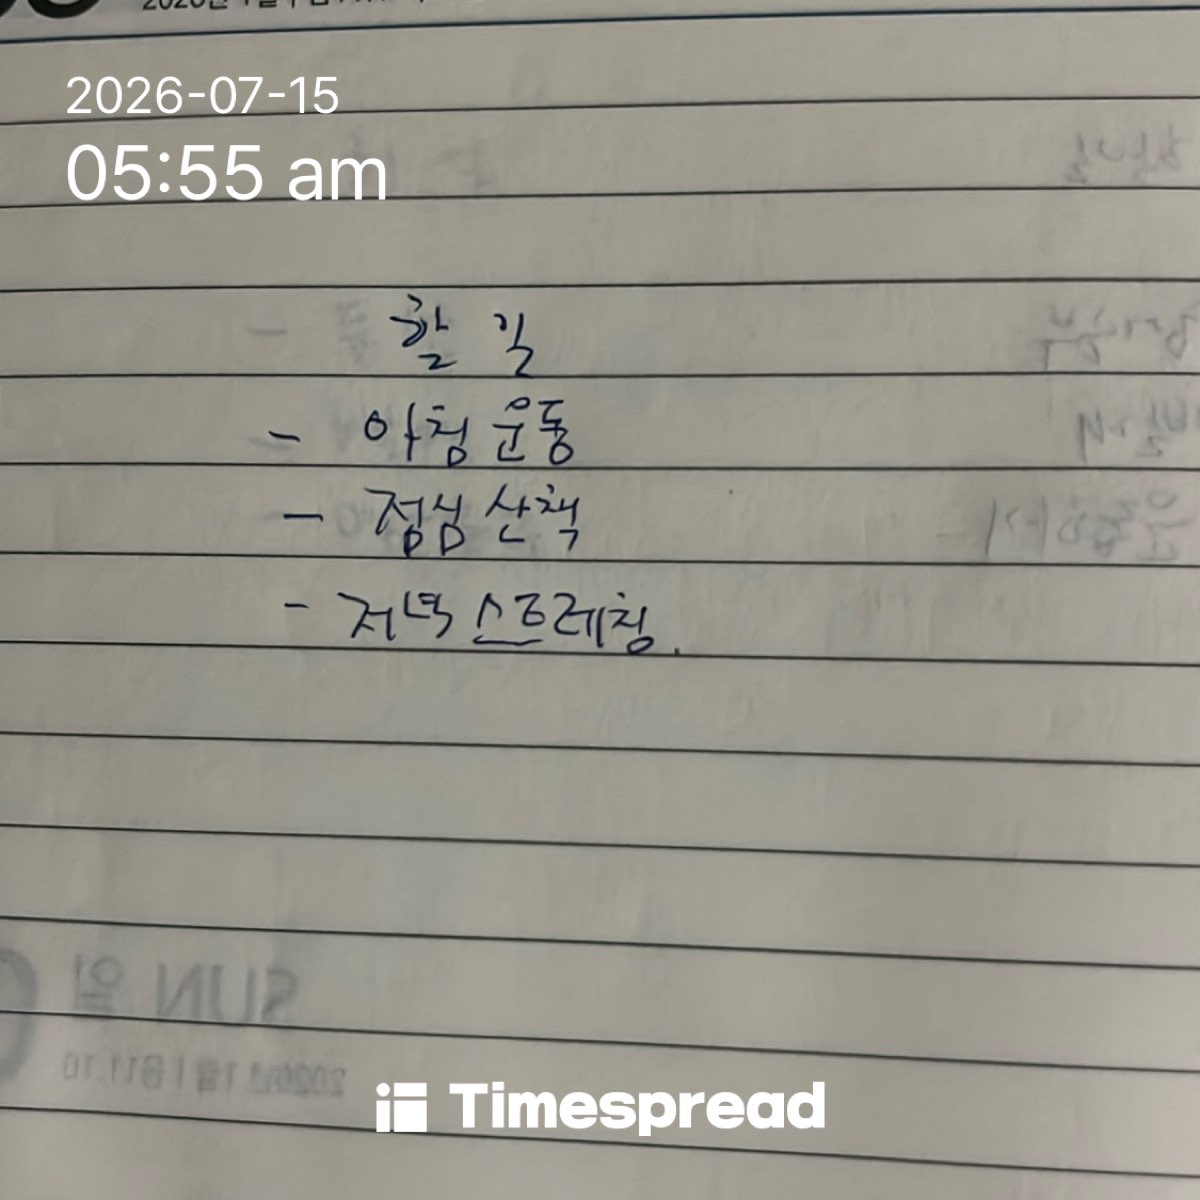 2026-07-15
05:55 am
할 일
- 아침 운동
- 점심 산책
- 저녁 스트레칭.
SUN 일
Timespread